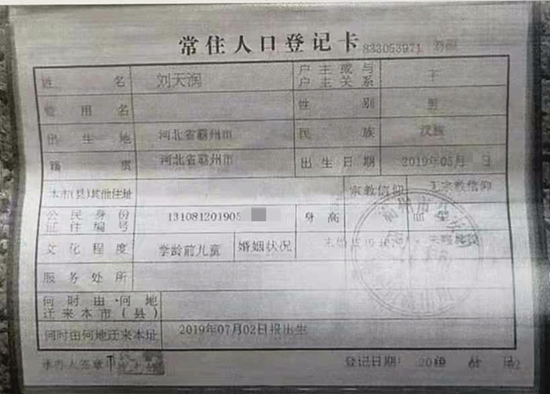 常住人口登记卡 833053971
姓 名 刘天润 户主或与户主关系 子
曾用名 性别 男
出生地 河北省霸州市 民族 汉族
籍贯 河北省霸州市 出生日期 2019年05月 日
本市(县)其他住址 宗教信仰 无宗教信仰
公民身份证件编号 131081201905 身高
文化程度 学龄前儿童 婚姻状况 未婚
服务处所
何时由何地迁来本市(县)
何时由何地迁来本址 2019年07月02日报出生
承办人签章 登记日期: